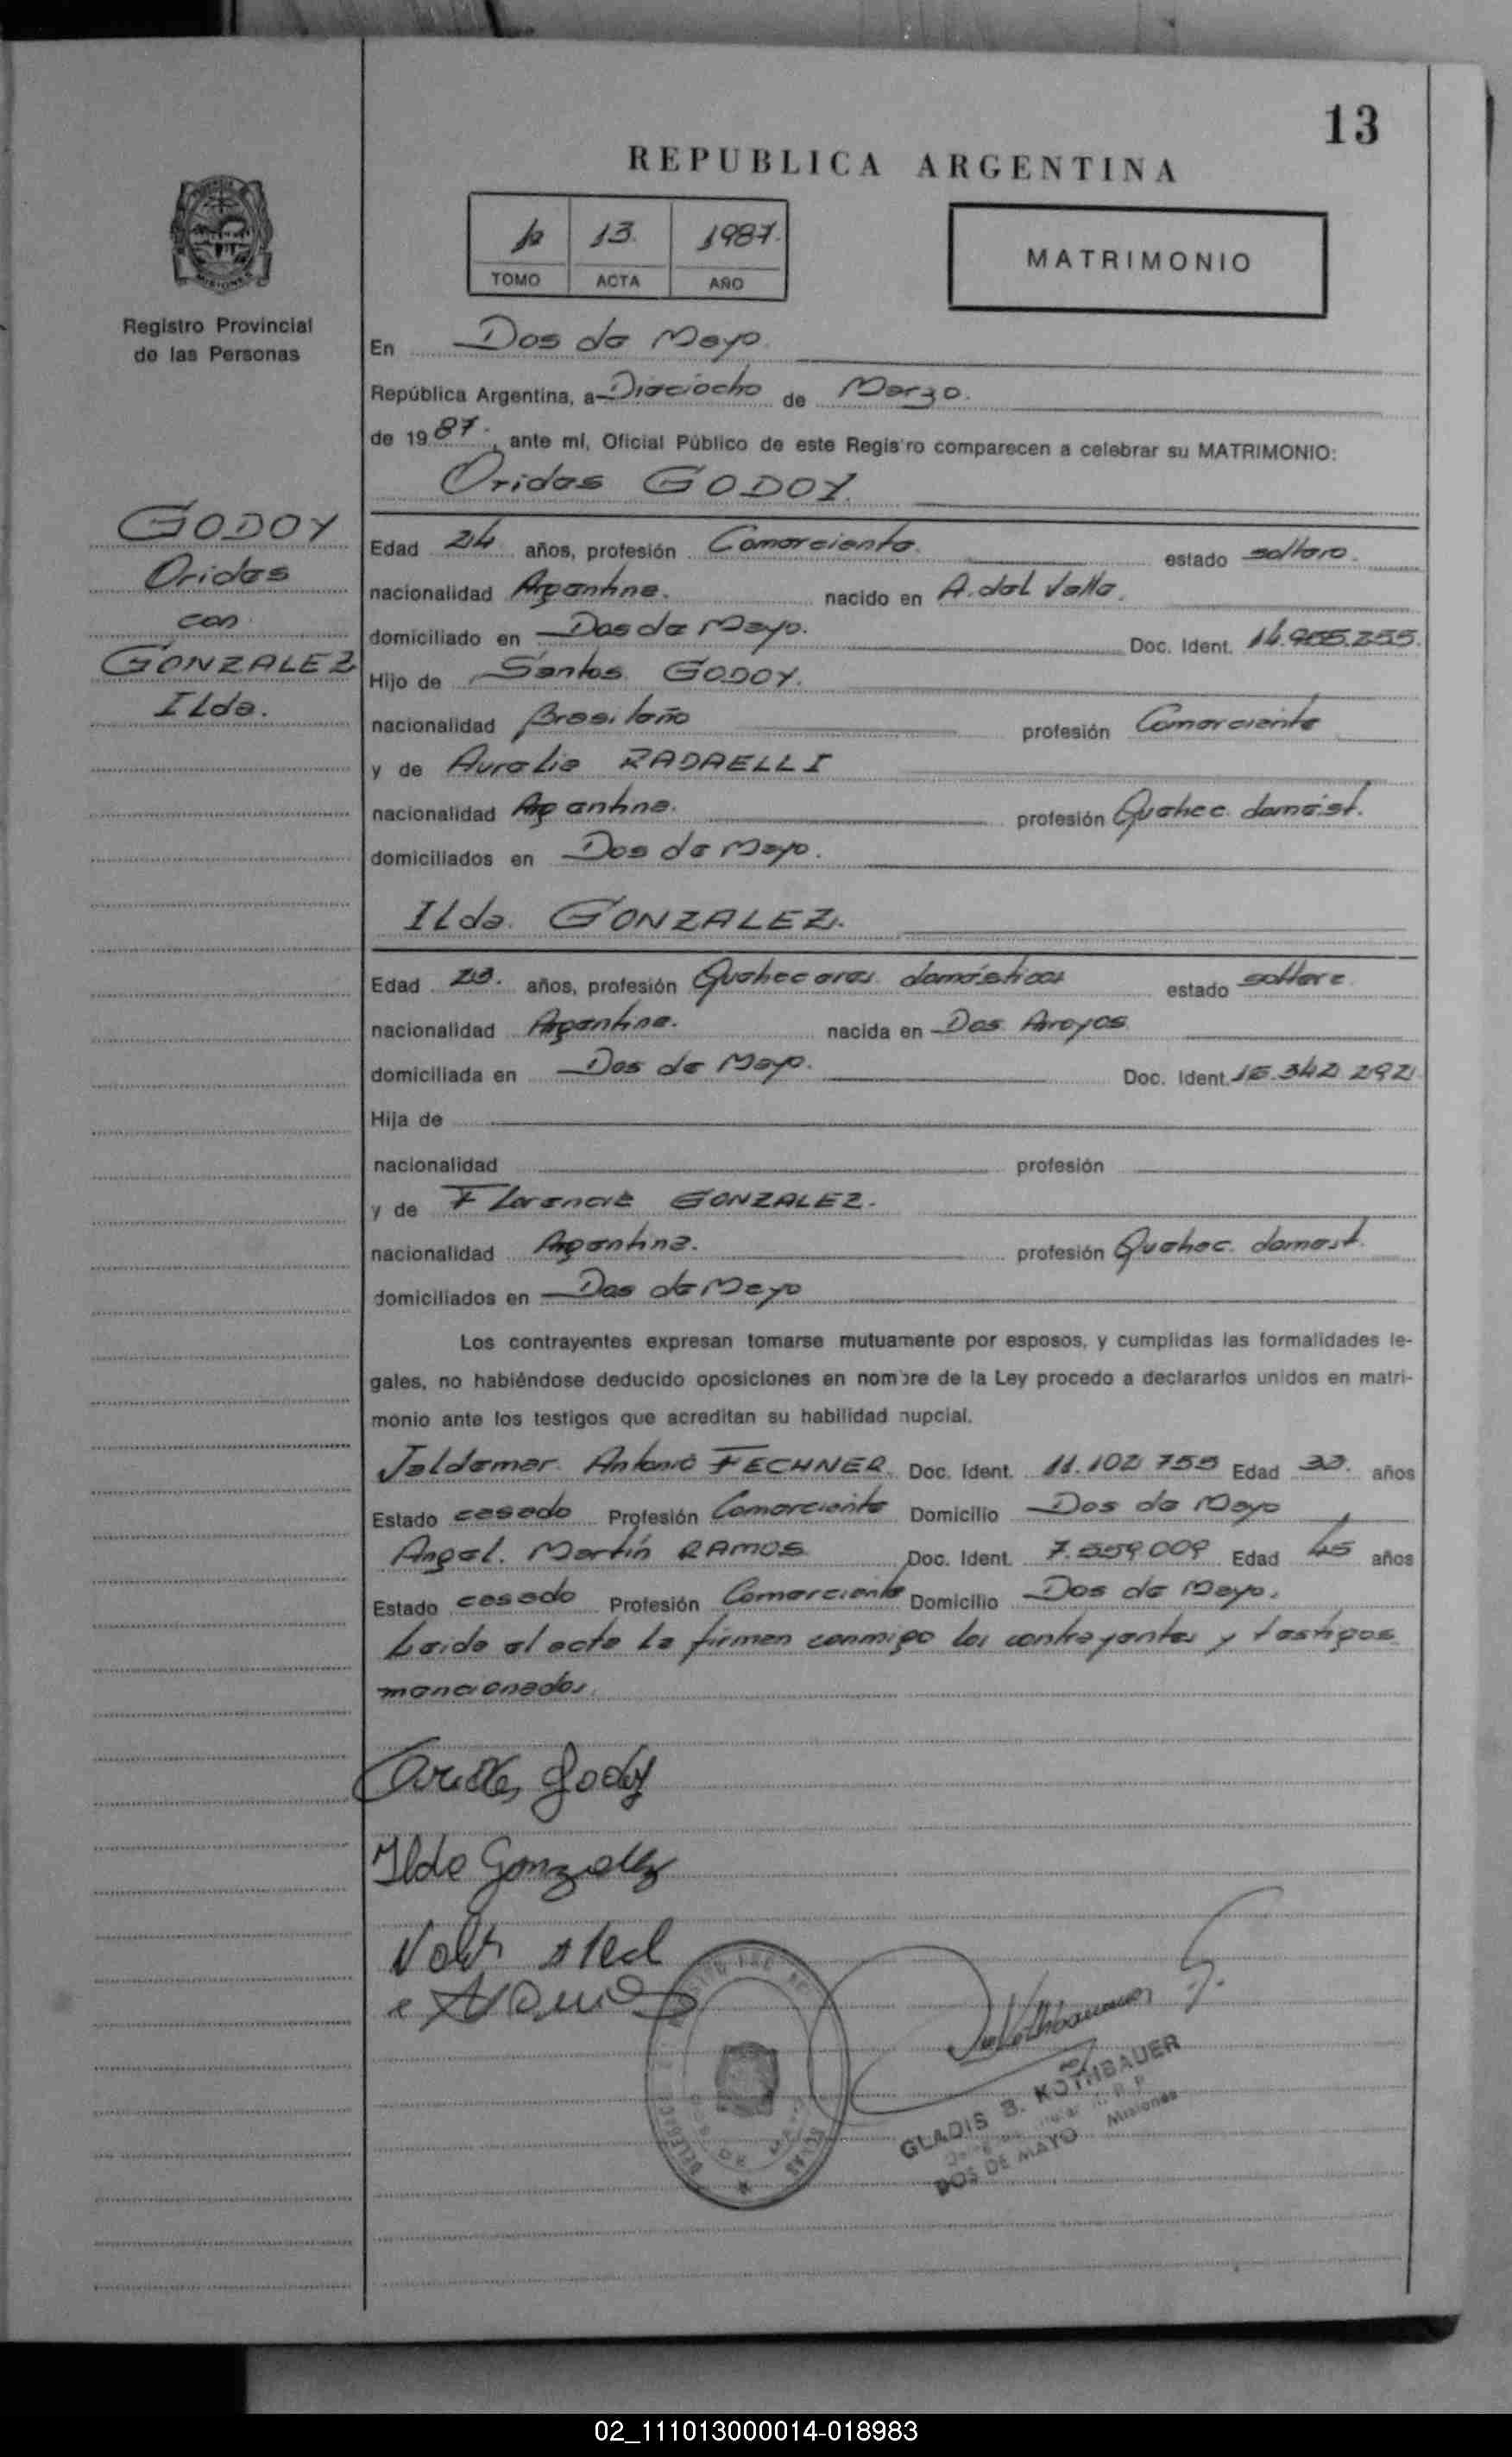 13
REPUBLICA ARGENTINA
13. 1987.
TOMO ACTA AÑO
MATRIMONIO
Registro Provincial
de las Personas
En Dos de Mayo.
República Argentina, a Dieciocho de Marzo.
de 1987., ante mí, Oficial Público de este Registro comparecen a celebrar su MATRIMONIO:
Orides GODOY.
GODOY
Orides
con
GONZALEZ
Ilda.
Edad 24 años, profesión Comerciante. estado soltero.
nacionalidad Argentina. nacido en A. del Valle.
domiciliado en Dos de Mayo. Doc. Ident.
Hijo de Santos GODOY.
nacionalidad Brasileño profesión Comerciante
y de Aurelia RADAELLI
nacionalidad Argentina. profesión Quehec. domést.
domiciliados en Dos de Mayo.
Ilda. GONZALEZ.
Edad años, profesión Quehaceres domésticos estado soltera
nacionalidad Argentina. nacida en Dos Arroyos
domiciliada en Dos de Mayo. Doc. Ident.
Hija de
nacionalidad profesión
y de Florencia GONZALEZ.
nacionalidad Argentina. profesión Quehac. domest.
domiciliados en Dos de Mayo
Los contrayentes expresan tomarse mutuamente por esposos, y cumplidas las formalidades le-
gales, no habiéndose deducido oposiciones en nombre de la Ley procedo a declararlos unidos en matri-
monio ante los testigos que acreditan su habilidad nupcial.
Valdemar Antonio FECHNER Doc. Ident. 11.102 755 Edad 33. años
Estado casado Profesión Comerciante Domicilio Dos de Mayo
Angel. Martín RAMOS Doc. Ident. 7.559.009 Edad 45 años
Estado casado Profesión Comerciante Domicilio Dos de Mayo.
Leida el acta la firman conmigo los contrayentes y testigos
mencionados.
Godoy
Ilda Gonzalez
GLADIS B. KOTHBAUER
DOS DE MAYO Misiones
02_111013000014-018983